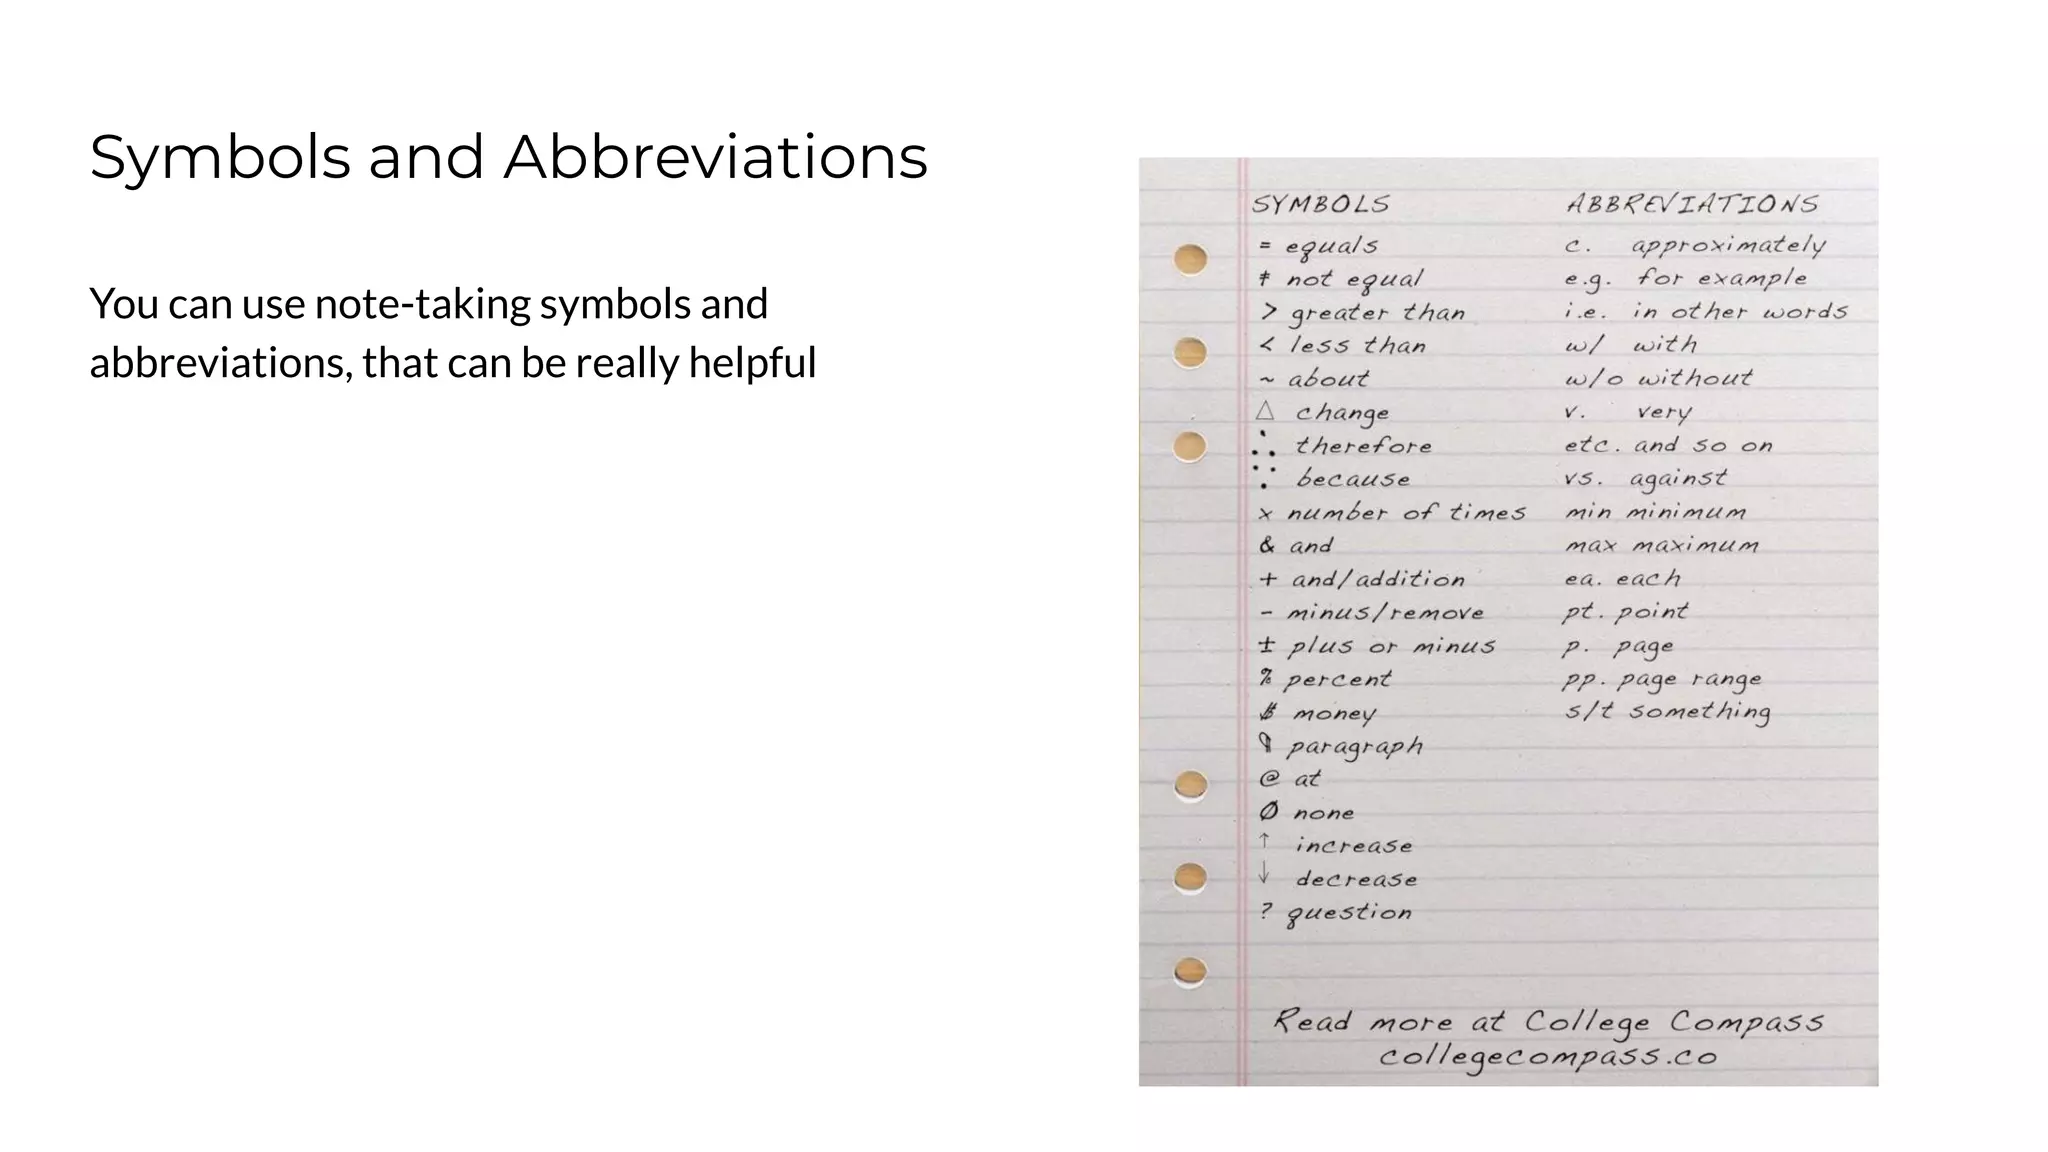 Symbols and Abbreviations
You can use note-taking symbols and
abbreviations, that can be really helpful
SYMBOLS
= equals
≠ not equal
> greater than
< less than
~ about
△ change
∴ therefore
∵ because
x number of times
& and
+ and/addition
- minus/remove
± plus or minus
% percent
$ money
¶ paragraph
@ at
Ø none
↑ increase
↓ decrease
? question
ABBREVIATIONS
c. approximately
e.g. for example
i.e. in other words
w/ with
w/o without
v. very
etc. and so on
vs. against
min minimum
max maximum
ea. each
pt. point
p. page
pp. page range
s/t something
Read more at College Compass
collegecompass.co